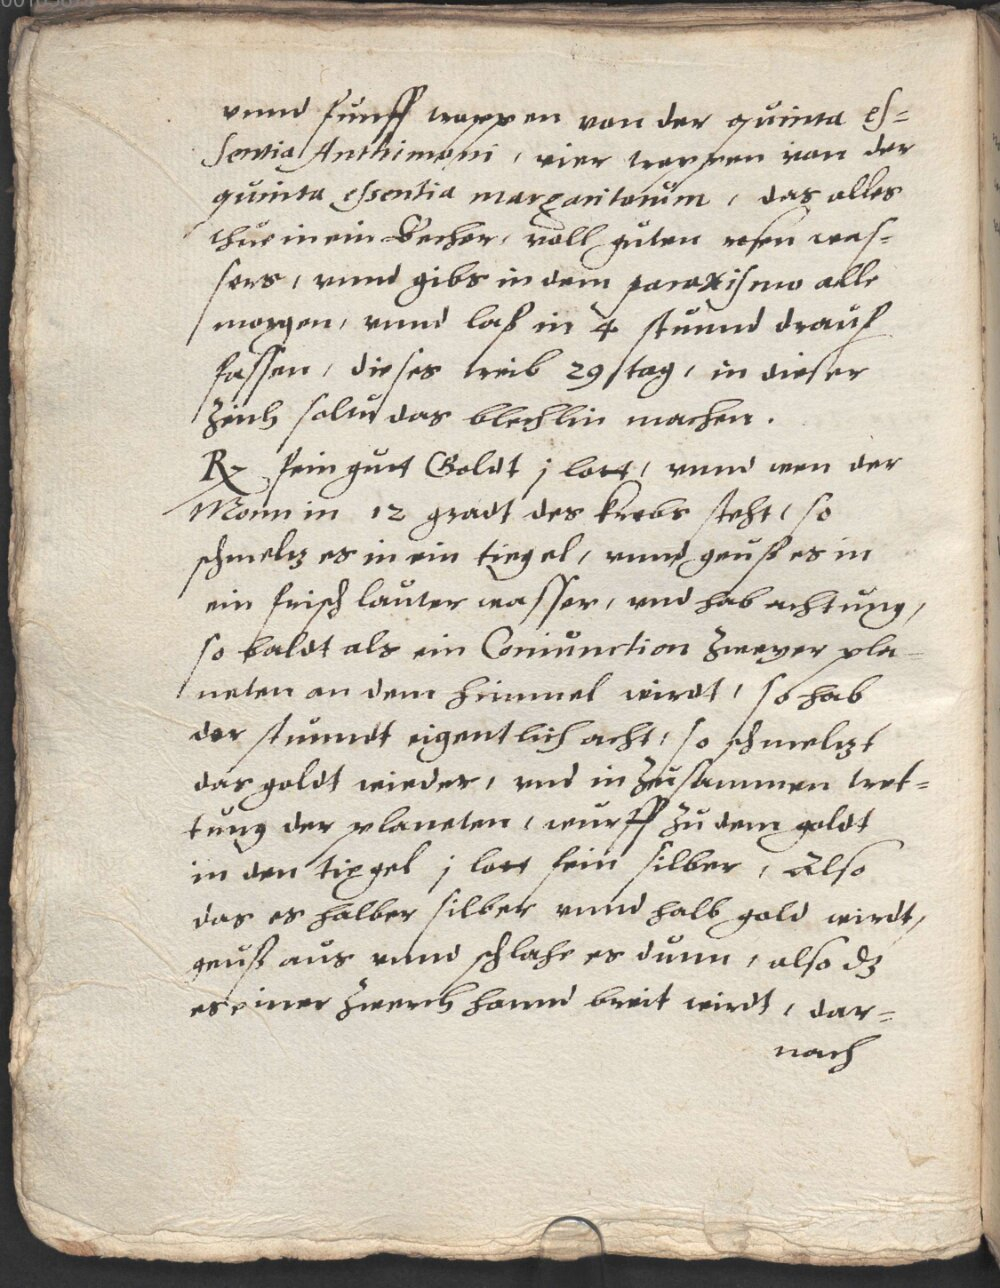 vnnd funff troppen von der quinta es=
sentia Anthimoni, vier troppen von der
quinta essentia margaritarum, das alles
thue in ein Becher, voll guten rosen was=
sers, vnnd gibs in dem paroxismo alle
morgen, vnnd laß in 4 stunnd drauf
fassen, dieses treib 29 tag, in dieser
Zeith soltu das blechlin machen.
R- fein gutt Goldt j lott, vnnd wen der
Monn in 12 gradt des krebs steht, so
schmeltz es in ein tiegel, vnnd geuß es in
ein frisch lauter wasser, vnd hab achtung,
so baldt als ein Coniunction Zweyer pla-
neten an dem himmel wirdt, so hab
der stunndt eigentlich acht, so schmeltzt
das goldt wieder, vnd in Zusammen tret=
tung der planeten, wurff Zu dem goldt
in den tigel j lott fein silber, Also
das es halber silber vnnd halb gold wirdt,
geuß aus vnnd schlahe es dunn, also dz
es einer Zwerch hannd breit wirdt, dar=
nach